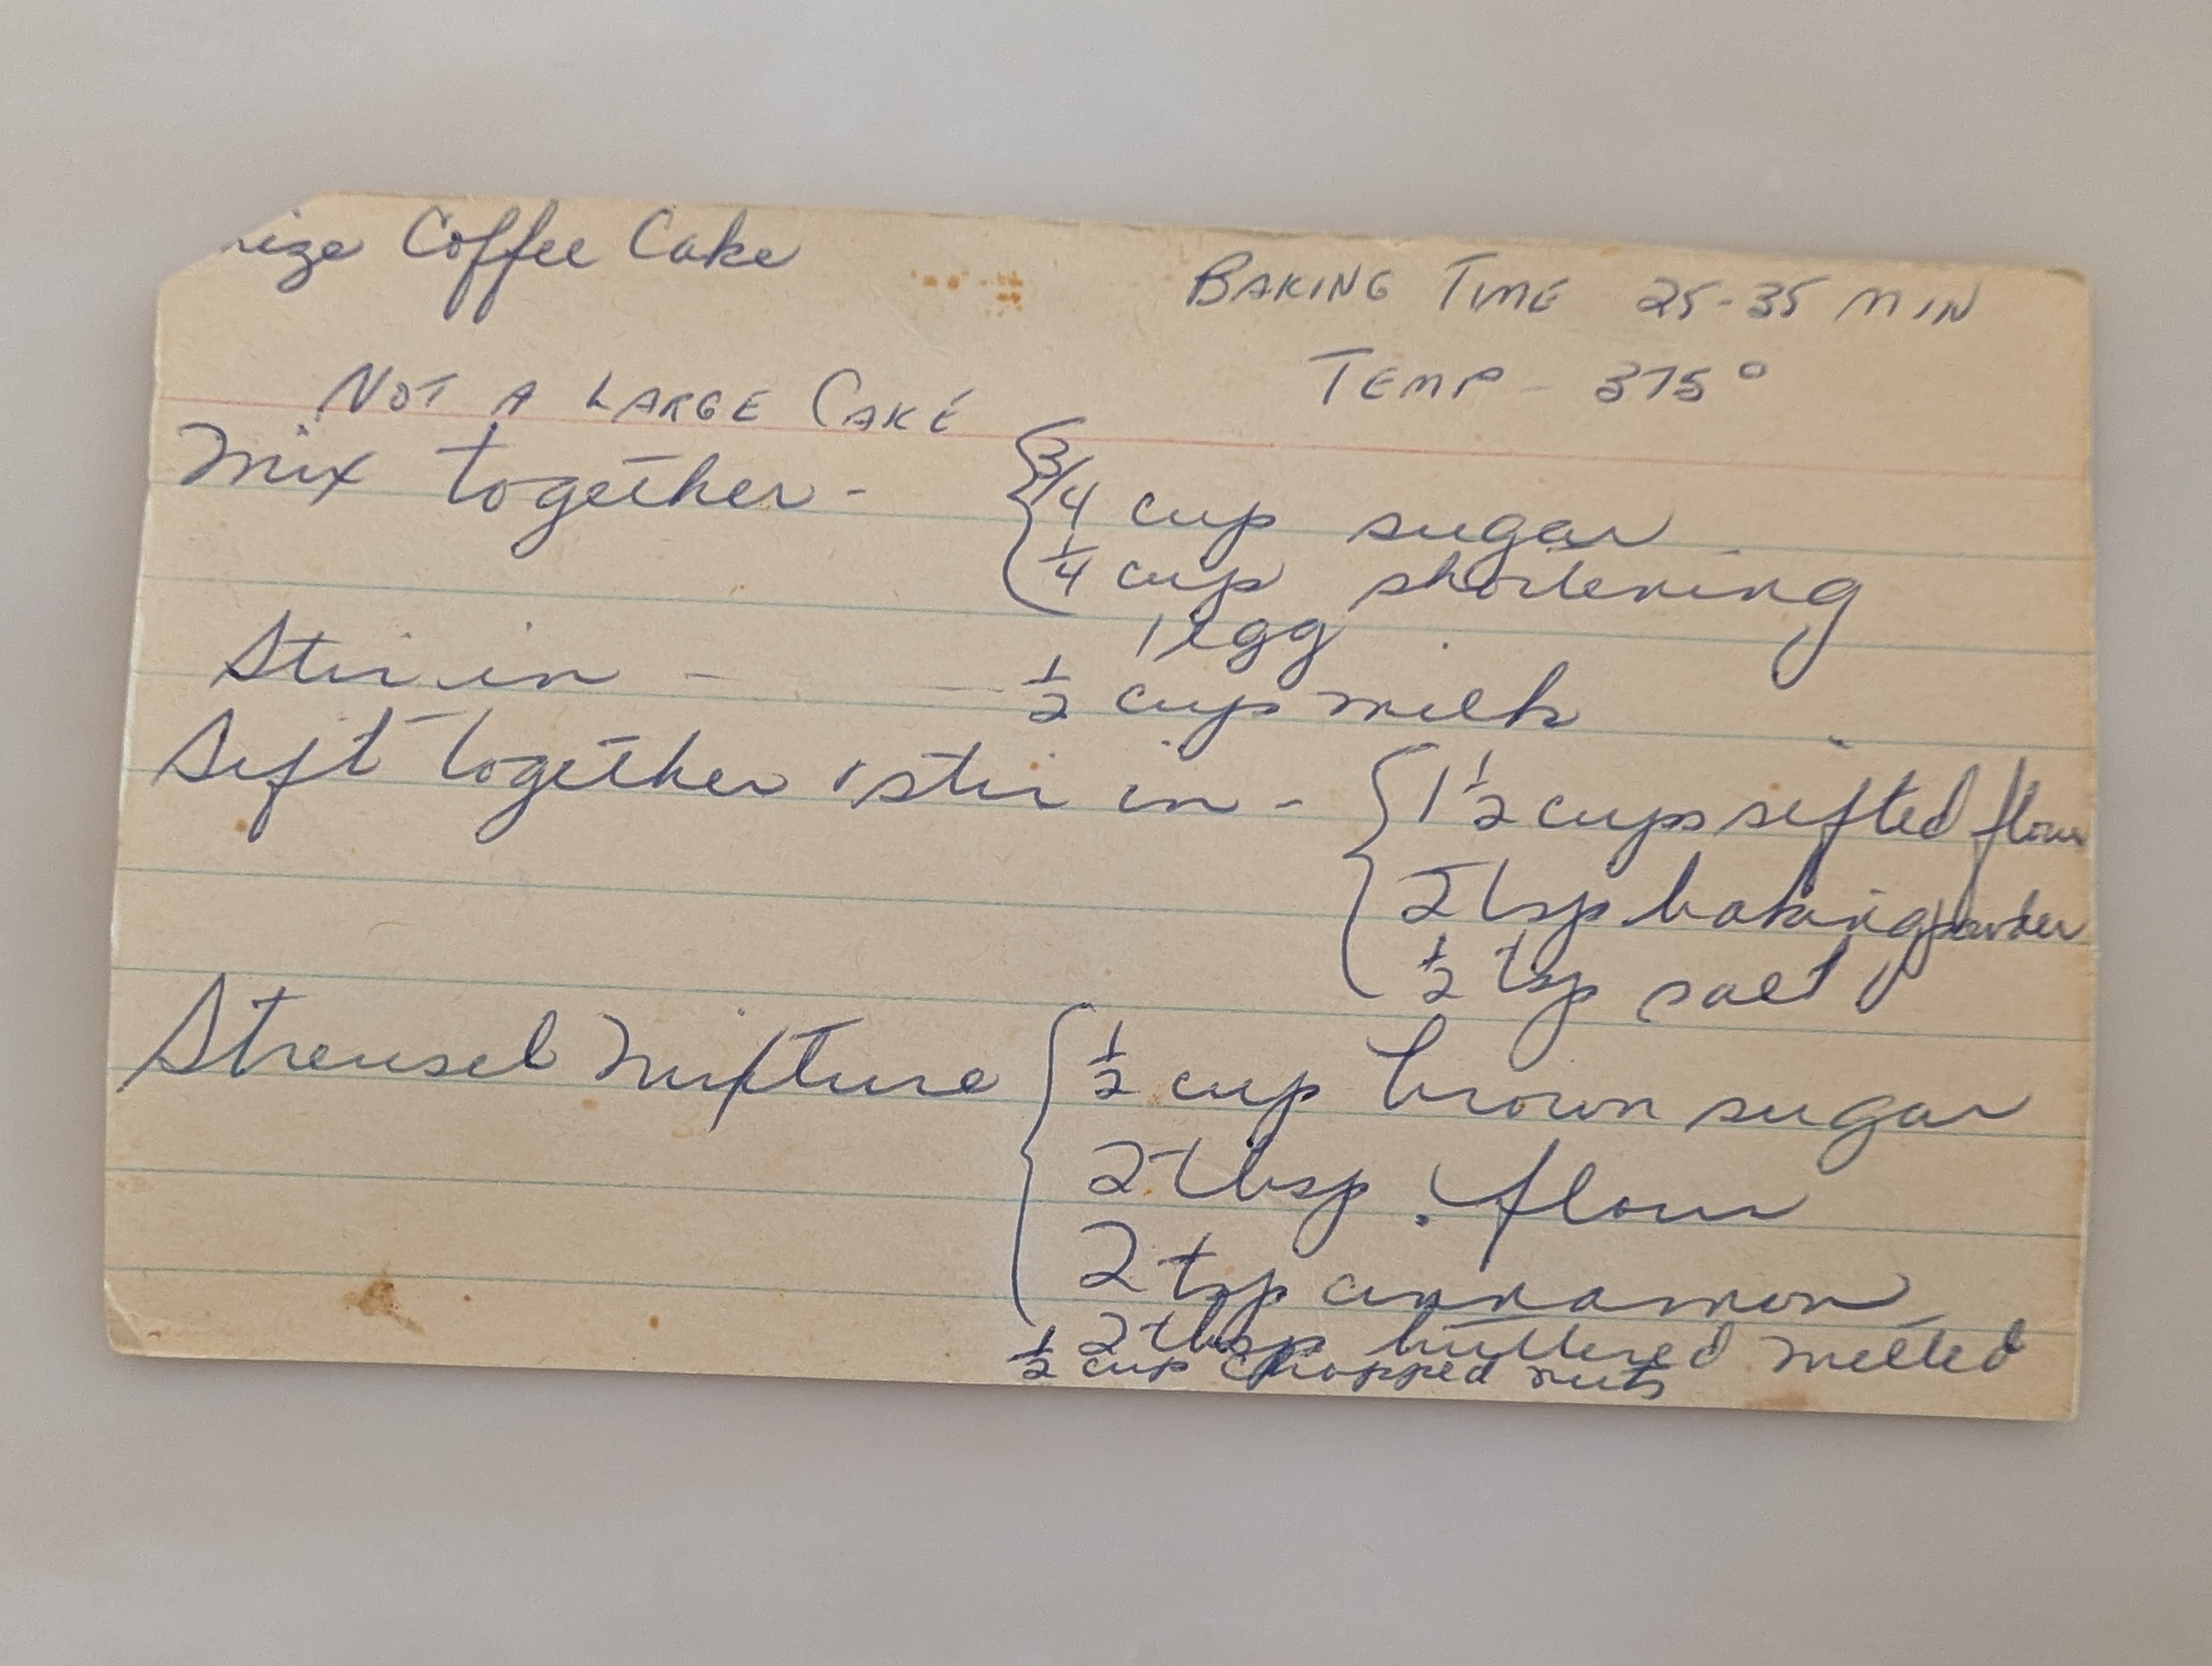 rize Coffee Cake
BAKING TIME 25-35 MIN
TEMP - 375°
NOT A LARGE CAKE
Mix together - { 3/4 cup sugar
1/4 cup shortening
1 egg
Stir in - - 1/2 cup milk
Sift together & stir in - { 1 1/2 cups sifted flour
2 tsp baking powder
1/2 tsp salt
Streusel Mixture { 1/2 cup brown sugar
2 tbsp flour
2 tsp cinnamon
2 tbsp buttered melted
1/2 cup chopped nuts